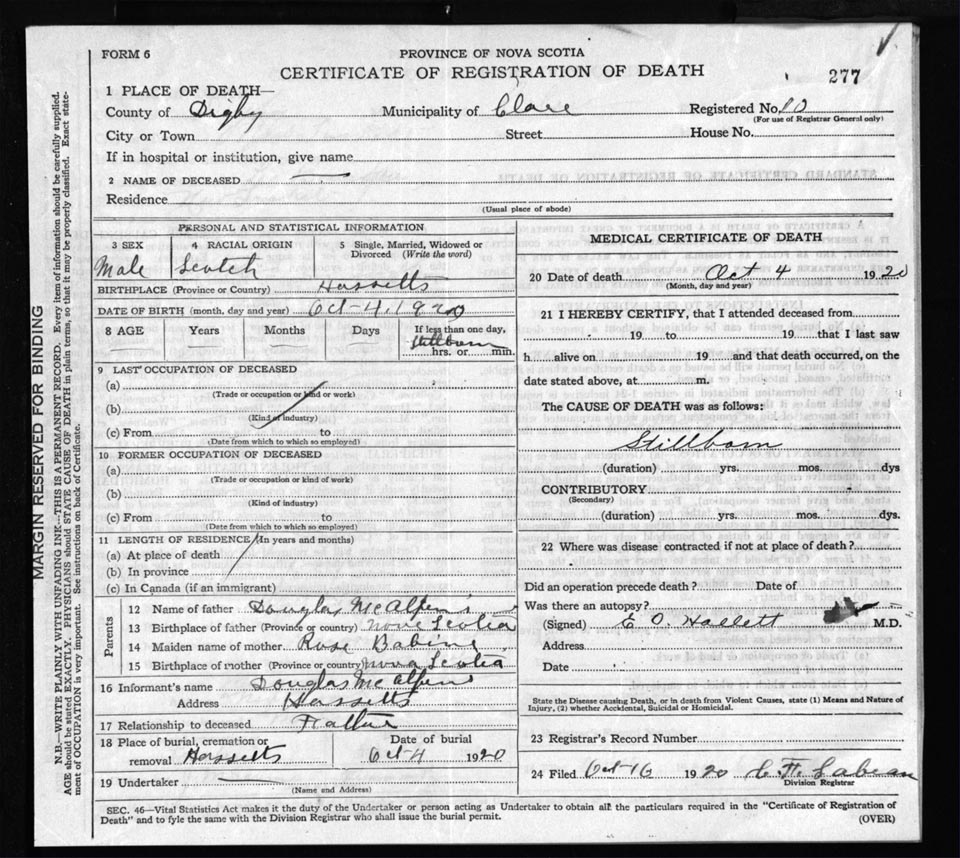 FORM 6
PROVINCE OF NOVA SCOTIA
CERTIFICATE OF REGISTRATION OF DEATH
277
1 PLACE OF DEATH—
County of Digby Municipality of Clare Registered No. 10
(For use of Registrar General only)
City or Town Street House No.
If in hospital or institution, give name
2 NAME OF DECEASED
Residence
(Usual place of abode)
PERSONAL AND STATISTICAL INFORMATION
3 SEX 4 RACIAL ORIGIN 5 Single, Married, Widowed or Divorced (Write the word)
Male Scotch
BIRTHPLACE (Province or Country) Hassetts
DATE OF BIRTH (month, day and year) Oct-4, 1920
8 AGE Years Months Days If less than one day,
Stillborn
hrs. or min.
9 LAST OCCUPATION OF DECEASED
(a)
(Trade or occupation or kind or work)
(b)
(Kind of industry)
(c) From to
(Date from which to which so employed)
10 FORMER OCCUPATION OF DECEASED
(a)
(Trade or occupation or kind of work)
(b)
(Kind of industry)
(c) From to
(Date from which to which so employed)
11 LENGTH OF RESIDENCE (In years and months)
(a) At place of death
(b) In province
(c) In Canada (if an immigrant)
Parents
12 Name of father Douglas
13 Birthplace of father (Province or country) Nova Scotia
14 Maiden name of mother Rose
15 Birthplace of mother (Province or country) Nova Scotia
16 Informant's name Douglas
Address Hassetts
17 Relationship to deceased Father
18 Place of burial, cremation or Date of burial
removal Hassetts Oct-4 1920
19 Undertaker
(Name and Address)
MEDICAL CERTIFICATE OF DEATH
20 Date of death Oct 4 1920
(Month, day and year)
21 I HEREBY CERTIFY, that I attended deceased from
19 to 19 that I last saw
h alive on 19 and that death occurred, on the
date stated above, at m.
The CAUSE OF DEATH was as follows:
Stillborn
(duration) yrs. mos. dys
CONTRIBUTORY
(Secondary)
(duration) yrs. mos. dys.
22 Where was disease contracted if not at place of death?
Did an operation precede death? Date of
Was there an autopsy?
(Signed) E O Hallett M.D.
Address
Date
State the Disease causing Death, or in death from Violent Causes, state (1) Means and Nature of
Injury, (2) whether Accidental, Suicidal or Homicidal.
23 Registrar's Record Number
24 Filed Oct-16 1920
Division Registrar
SEC. 46—Vital Statistics Act makes it the duty of the Undertaker or person acting as Undertaker to obtain all the particulars required in the "Certificate of Registration of
Death" and to fyle the same with the Division Registrar who shall issue the burial permit.
(OVER)
MARGIN RESERVED FOR BINDING
N.B.—WRITE PLAINLY WITH UNFADING INK—THIS IS A PERMANENT RECORD. Every item of information should be carefully supplied.
AGE should be stated EXACTLY. PHYSICIANS should STATE CAUSE OF DEATH in plain terms, so that it may be properly classified. Exact state-
ment of OCCUPATION is very important. See instructions on back of Certificate.